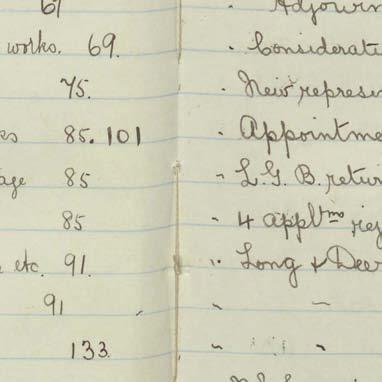 67
works. 69.
75.
85.101
85
85
etc. 91.
91
133
Adjourn
Considerati
New represe
Appointme
L.G.B. retur
4 appltns rej
Long & Deer
" —
"